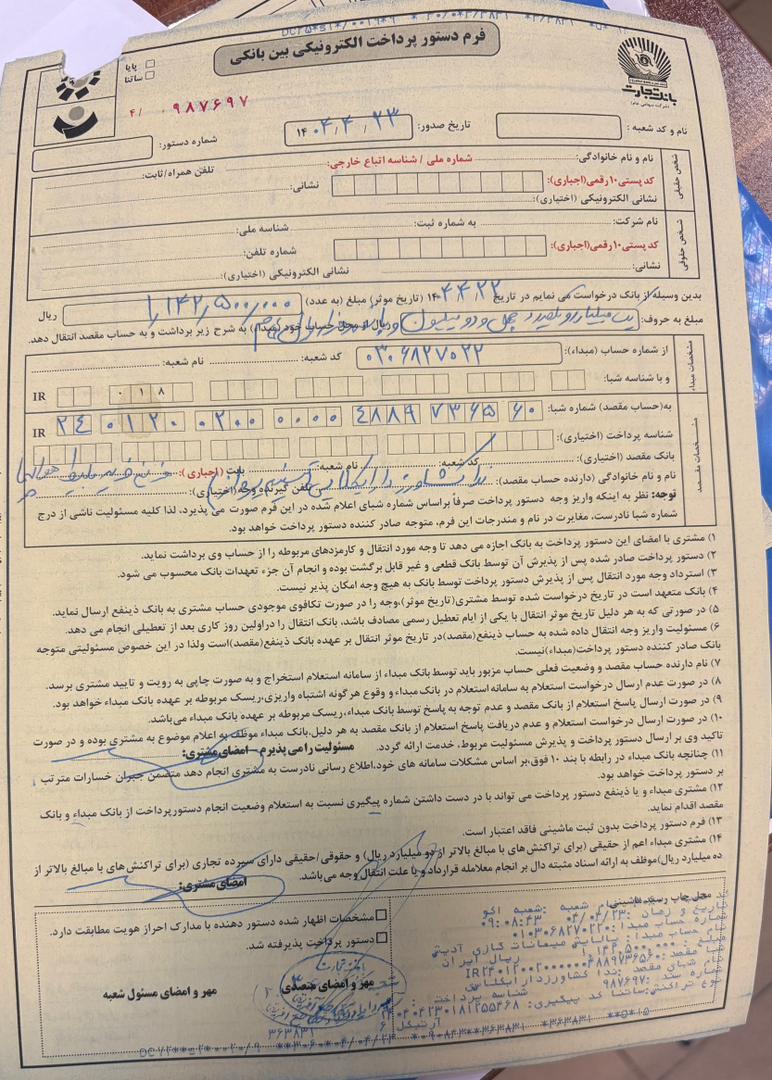 فرم دستور پرداخت الکترونیکی بین بانکی
بانک تجارت
(شرکت سهامی عام)
پایا
ساتنا
۴/ ۹۸۷۶۹۷
نام و کد شعبه :
تاریخ صدور: ۲۳ / ۴ / ۱۴۰۴
شماره دستور:
شخص حقیقی
نام و نام خانوادگی: شماره ملی / شناسه اتباع خارجی: تلفن همراه/ثابت:
کدپستی۱۰رقمی(اجباری): نشانی:
نشانی الکترونیکی (اختیاری):
شخص حقوقی
نام شرکت: به شماره ثبت: شناسه ملی:
کدپستی۱۰رقمی(اجباری): شماره تلفن:
نشانی: نشانی الکترونیکی (اختیاری):
بدین وسیله از بانک درخواست می نمایم در تاریخ (تاریخ موثر) مبلغ (به عدد) ۱,۱۴۲,۵۰۰,۰۰۰ ریال
مبلغ به حروف: یک میلیارد و یکصد و چهل و دو میلیون و پانصد هزار ریال از محل حساب خود (مبداء) به شرح زیر برداشت و به حساب مقصد انتقال دهد.
مشخصات مبداء
از شماره حساب (مبداء): ۰۳۰۶۸۲۷۰۲۲ کد شعبه: نام شعبه:
و با شناسه شبا: ۰۱۸ IR
مشخصات مقصد
به(حساب مقصد) شماره شبا: IR ۲۴ ۰۱۲۰ ۰۲۰۰ ۰۰۰۰ ۴۸۸۹ ۷۳۶۵ ۶۰
شناسه پرداخت (اختیاری):
بانک مقصد (اختیاری): کد شعبه: نام شعبه: بابت (اجباری):
نام و نام خانوادگی (دارنده حساب مقصد): ندا کشاورز دارابکلائی تلفن گیرنده وجه(اختیاری):
توجه: نظر به اینکه واریز وجه دستور پرداخت صرفاً براساس شماره شبای اعلام شده در این فرم صورت می پذیرد، لذا کلیه مسئولیت ناشی از درج
شماره شبا نادرست، مغایرت در نام و مندرجات این فرم، متوجه صادر کننده دستور پرداخت خواهد بود.
۱) مشتری با امضای این دستور پرداخت به بانک اجازه می دهد تا وجه مورد انتقال و کارمزدهای مربوطه را از حساب وی برداشت نماید.
۲) دستور پرداخت صادر شده پس از پذیرش آن توسط بانک قطعی و غیر قابل برگشت بوده و انجام آن جزء تعهدات بانک محسوب می شود.
۳) استرداد وجه مورد انتقال پس از پذیرش دستور پرداخت توسط بانک به هیچ وجه امکان پذیر نیست.
۴) بانک متعهد است در تاریخ درخواست شده توسط مشتری(تاریخ موثر)،وجه را در صورت تکافوی موجودی حساب مشتری به بانک ذینفع ارسال نماید.
۵) در صورتی که به هر دلیل تاریخ موثر انتقال با یکی از ایام تعطیل رسمی مصادف باشد، بانک انتقال را دراولین روز کاری بعد از تعطیلی انجام می دهد.
۶) مسئولیت واریز وجه انتقال داده شده به حساب ذینفع(مقصد)در تاریخ موثر انتقال بر عهده بانک ذینفع(مقصد)است ولذا در این خصوص مسئولیتی متوجه
بانک صادر کننده دستور پرداخت(مبداء)نیست.
۷) نام دارنده حساب مقصد و وضعیت فعلی حساب مزبور باید توسط بانک مبداء از سامانه استعلام استخراج و به صورت چاپی به رویت و تایید مشتری برسد.
۸) در صورت عدم ارسال درخواست استعلام به سامانه استعلام در بانک مبداء و وقوع هرگونه اشتباه واریزی،ریسک مربوطه بر عهده بانک مبداء خواهد بود.
۹) در صورت ارسال پاسخ استعلام از بانک مقصد و عدم توجه به پاسخ توسط بانک مبداء،ریسک مربوطه بر عهده بانک مبداء می‌باشد.
۱۰) در صورت ارسال درخواست استعلام و عدم دریافت پاسخ استعلام از بانک مقصد به هر دلیل،بانک مبداء موظف به اعلام موضوع به مشتری بوده و در صورت
تاکید وی بر ارسال دستور پرداخت و پذیرش مسئولیت مربوط، خدمت ارائه گردد. مسئولیت را می پذیرم - امضای مشتری:
۱۱) چنانچه بانک مبداء در رابطه با بند ۱۰ فوق،بر اساس مشکلات سامانه های خود،اطلاع رسانی نادرست به مشتری انجام دهد متضمن جبران خسارات مترتب
بر دستور پرداخت خواهد بود.
۱۲) مشتری مبداء و یا ذینفع دستور پرداخت می تواند با در دست داشتن شماره پیگیری نسبت به استعلام وضعیت انجام دستورپرداخت از بانک مبداء و بانک
مقصد اقدام نماید.
۱۳) فرم دستور پرداخت بدون ثبت ماشینی فاقد اعتبار است.
۱۴) مشتری مبداء اعم از حقیقی (برای تراکنش‌های با مبالغ بالاتر از دو میلیارد ریال) و حقوقی/حقیقی دارای سپرده تجاری (برای تراکنش‌های با مبالغ بالاتر از
ده میلیارد ریال)موظف به ارائه اسناد مثبته دال بر انجام معامله قرارداد و یا علت انتقال وجه می‌باشد.
امضای مشتری:
محل چاپ رسید ماشینی
شعبه :شعبه اکو
تاریخ و زمان :۰۴/۰۴/۲۳ ۰۹:۰۸:۴۳
شماره حساب مبدا :۰۱۰۳۰۶۸۲۷۰۲۲
نام حساب مبدا: پالایش میعانات گازی آدیش
مبلغ : ۱,۱۴۲,۵۰۰,۰۰۰ ریال ایران
شبا مقصد:IR۲۴۰۱۲۰۰۲۰۰۰۰۰۰۴۸۸۹۷۳۶۵۶۰
نام شبای مقصد :ندا کشاورزدارابکلائی
شماره سند :۹۸۷۶۹۷ شناسه پرداخت :
نوع تراکنش:ساتنا کد پیگیری:
مشخصات اظهار شده دستور دهنده با مدارک احراز هویت مطابقت دارد.
دستور پرداخت پذیرفته شد.
مهر و امضای متصدی
مهر و امضای مسئول شعبه